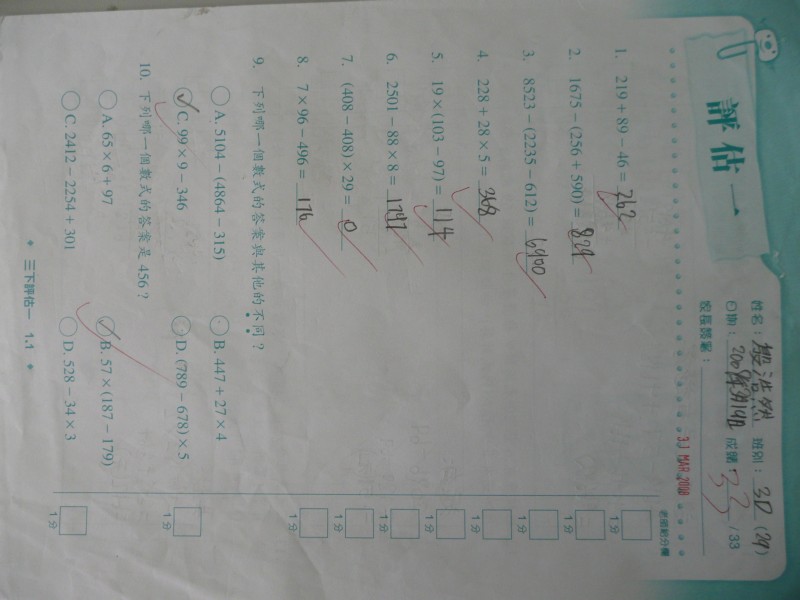 評估一
姓名：殷浩然 班別：3D (29)
日期： 成績：33/33
家長簽署：
31 MAR 2008
老師給分欄
1. 219 + 89 − 46 = 262
2. 1675 − (256 + 590) = 829
3. 8523 − (2235 − 612) = 6900
4. 228 + 28 × 5 = 368
5. 19 × (103 − 97) = 114
6. 2501 − 88 × 8 = 1797
7. (408 − 408) × 29 = 0
8. 7 × 96 − 496 = 176
9. 下列哪一個數式的答案與其他的不同？
A. 5104 − (4864 − 315) B. 447 + 27 × 4
C. 99 × 9 − 346 D. (789 − 678) × 5
10. 下列哪一個數式的答案是 456？
A. 65 × 6 + 97 B. 57 × (187 − 179)
C. 2412 − 2254 + 301 D. 528 − 34 × 3
1分
1分
1分
1分
1分
1分
1分
1分
1分
1分
三下評估一 1.1